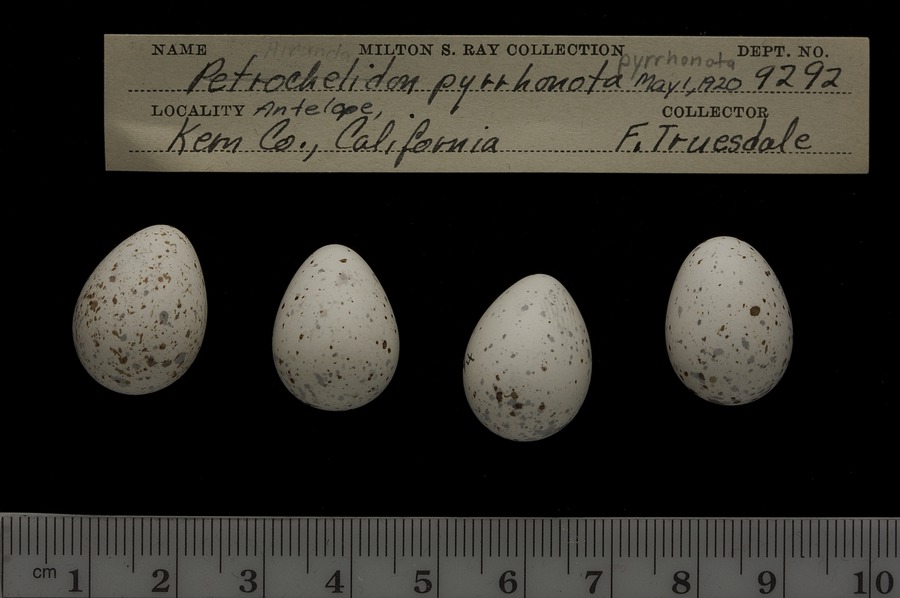 NAME Hirundo MILTON S. RAY COLLECTION pyrrhonota DEPT. NO.
Petrochelidon pyrrhonota May 1, 1920 9292
LOCALITY Antelope, COLLECTOR
Kern Co., California F. Truesdale
cm 1 2 3 4 5 6 7 8 9 10